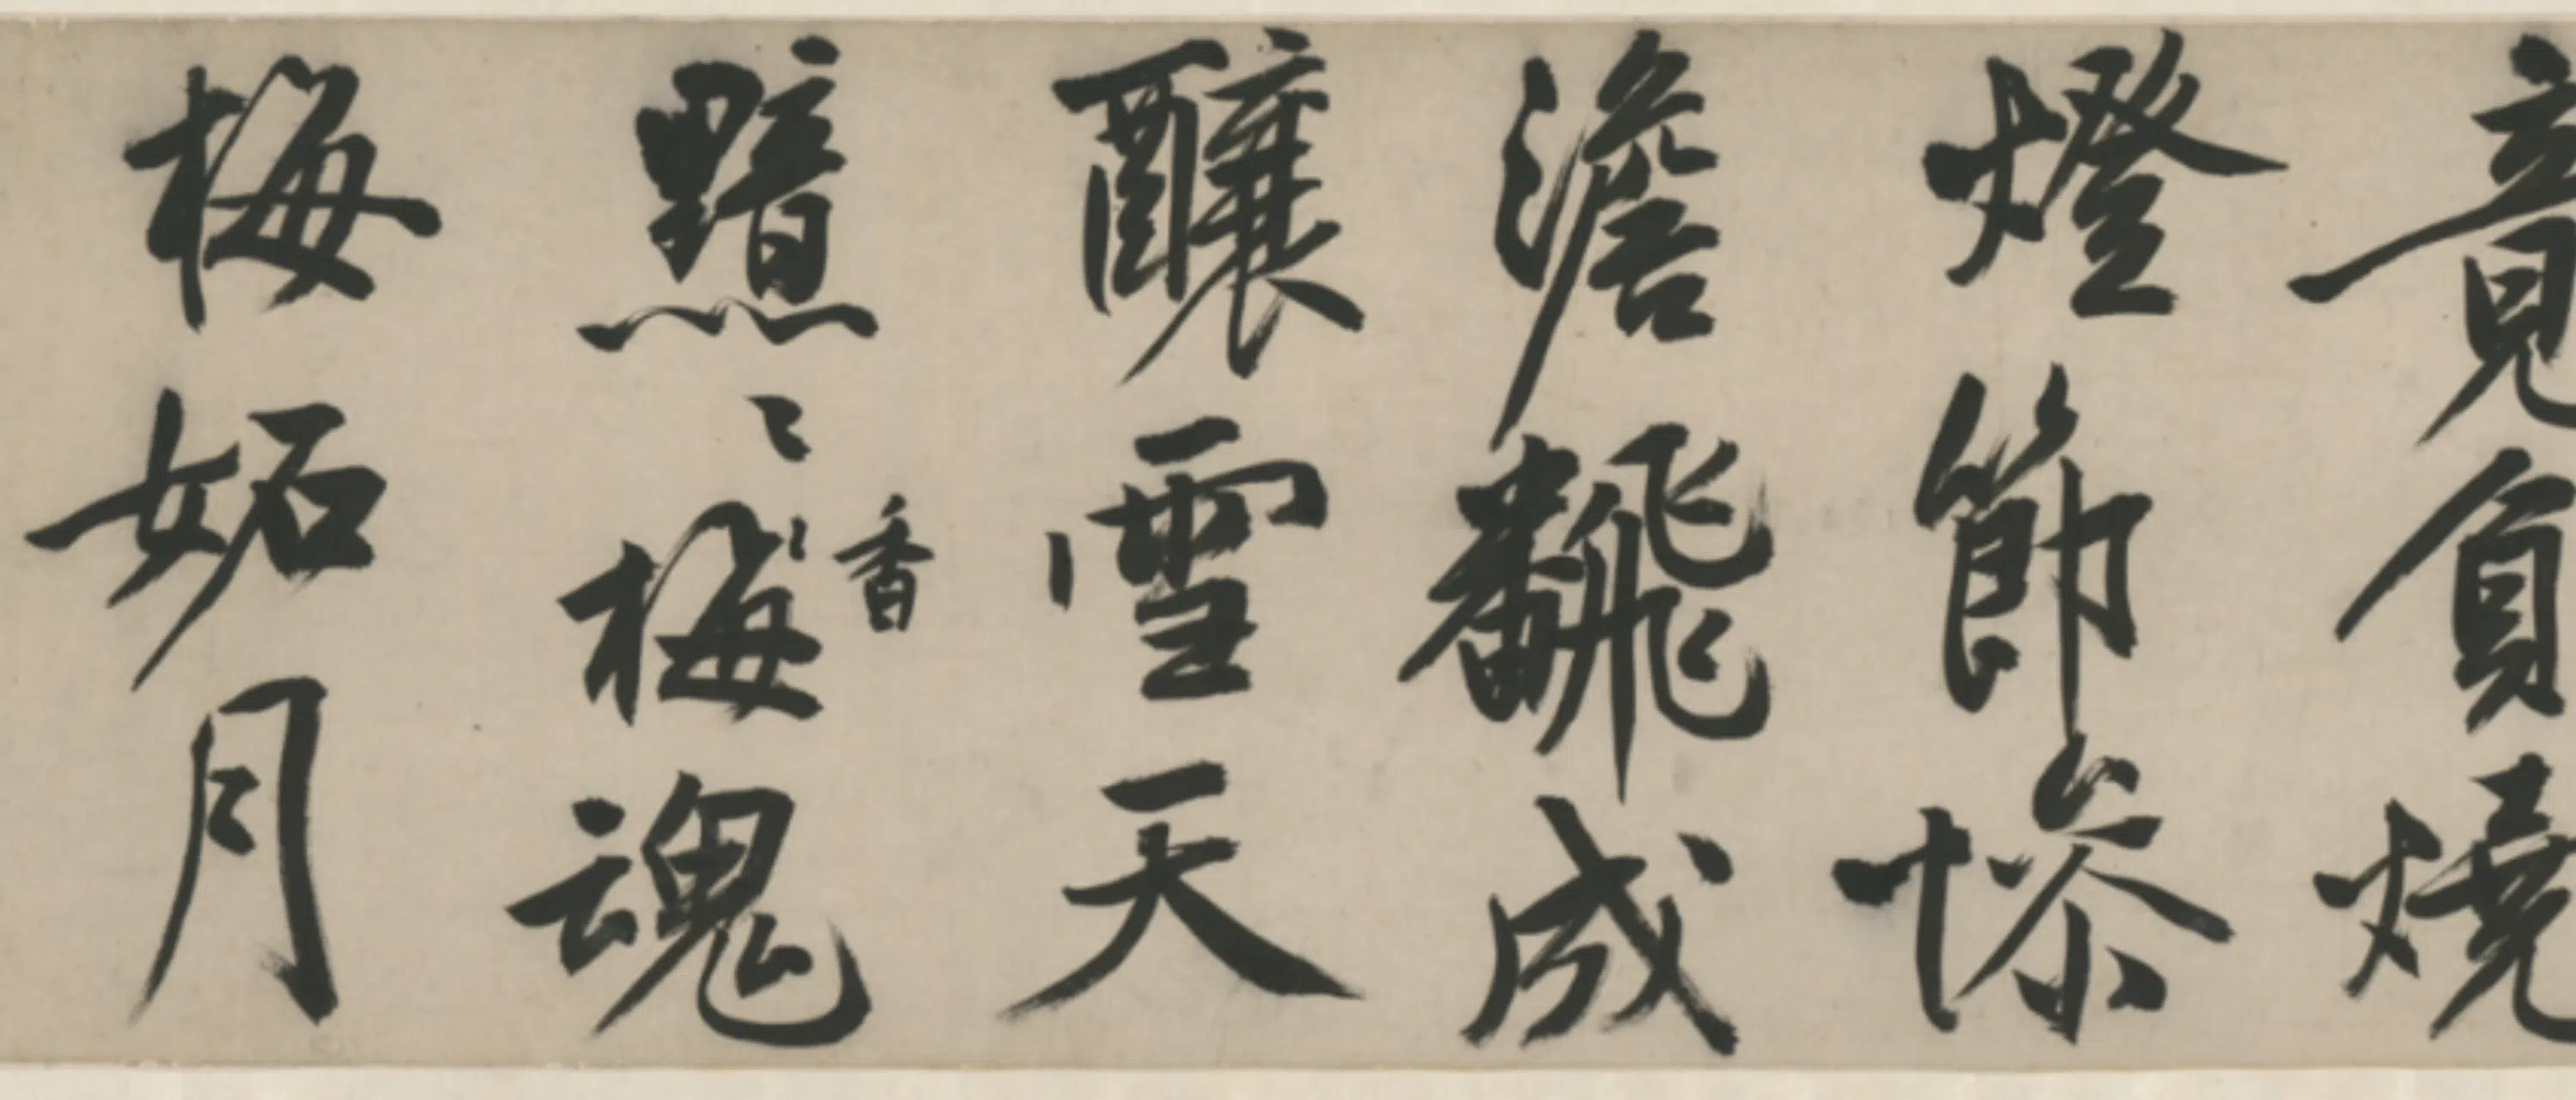 竟負燒
燈節慘
澹飜成
釀雪天
黯〻梅香魂
梅妬月